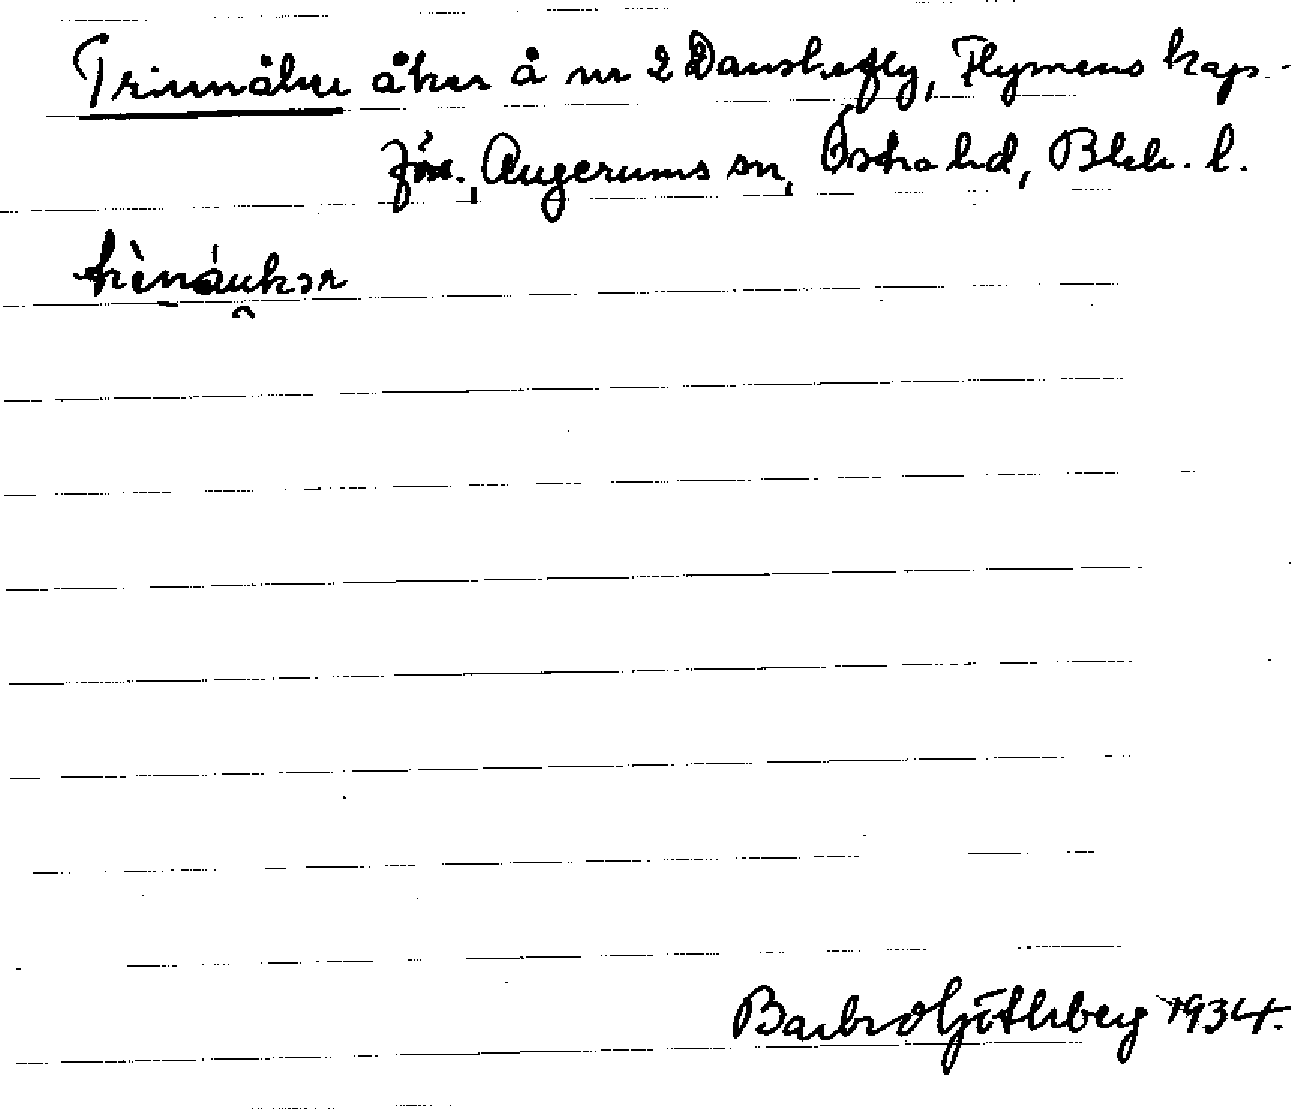 Trinnåker åker å nr 2 Danskefly, Flymens kap-
för., Augerums sn, Östra hd, Blek. l.
trìnáukər
Barbro Götlberg 1934.